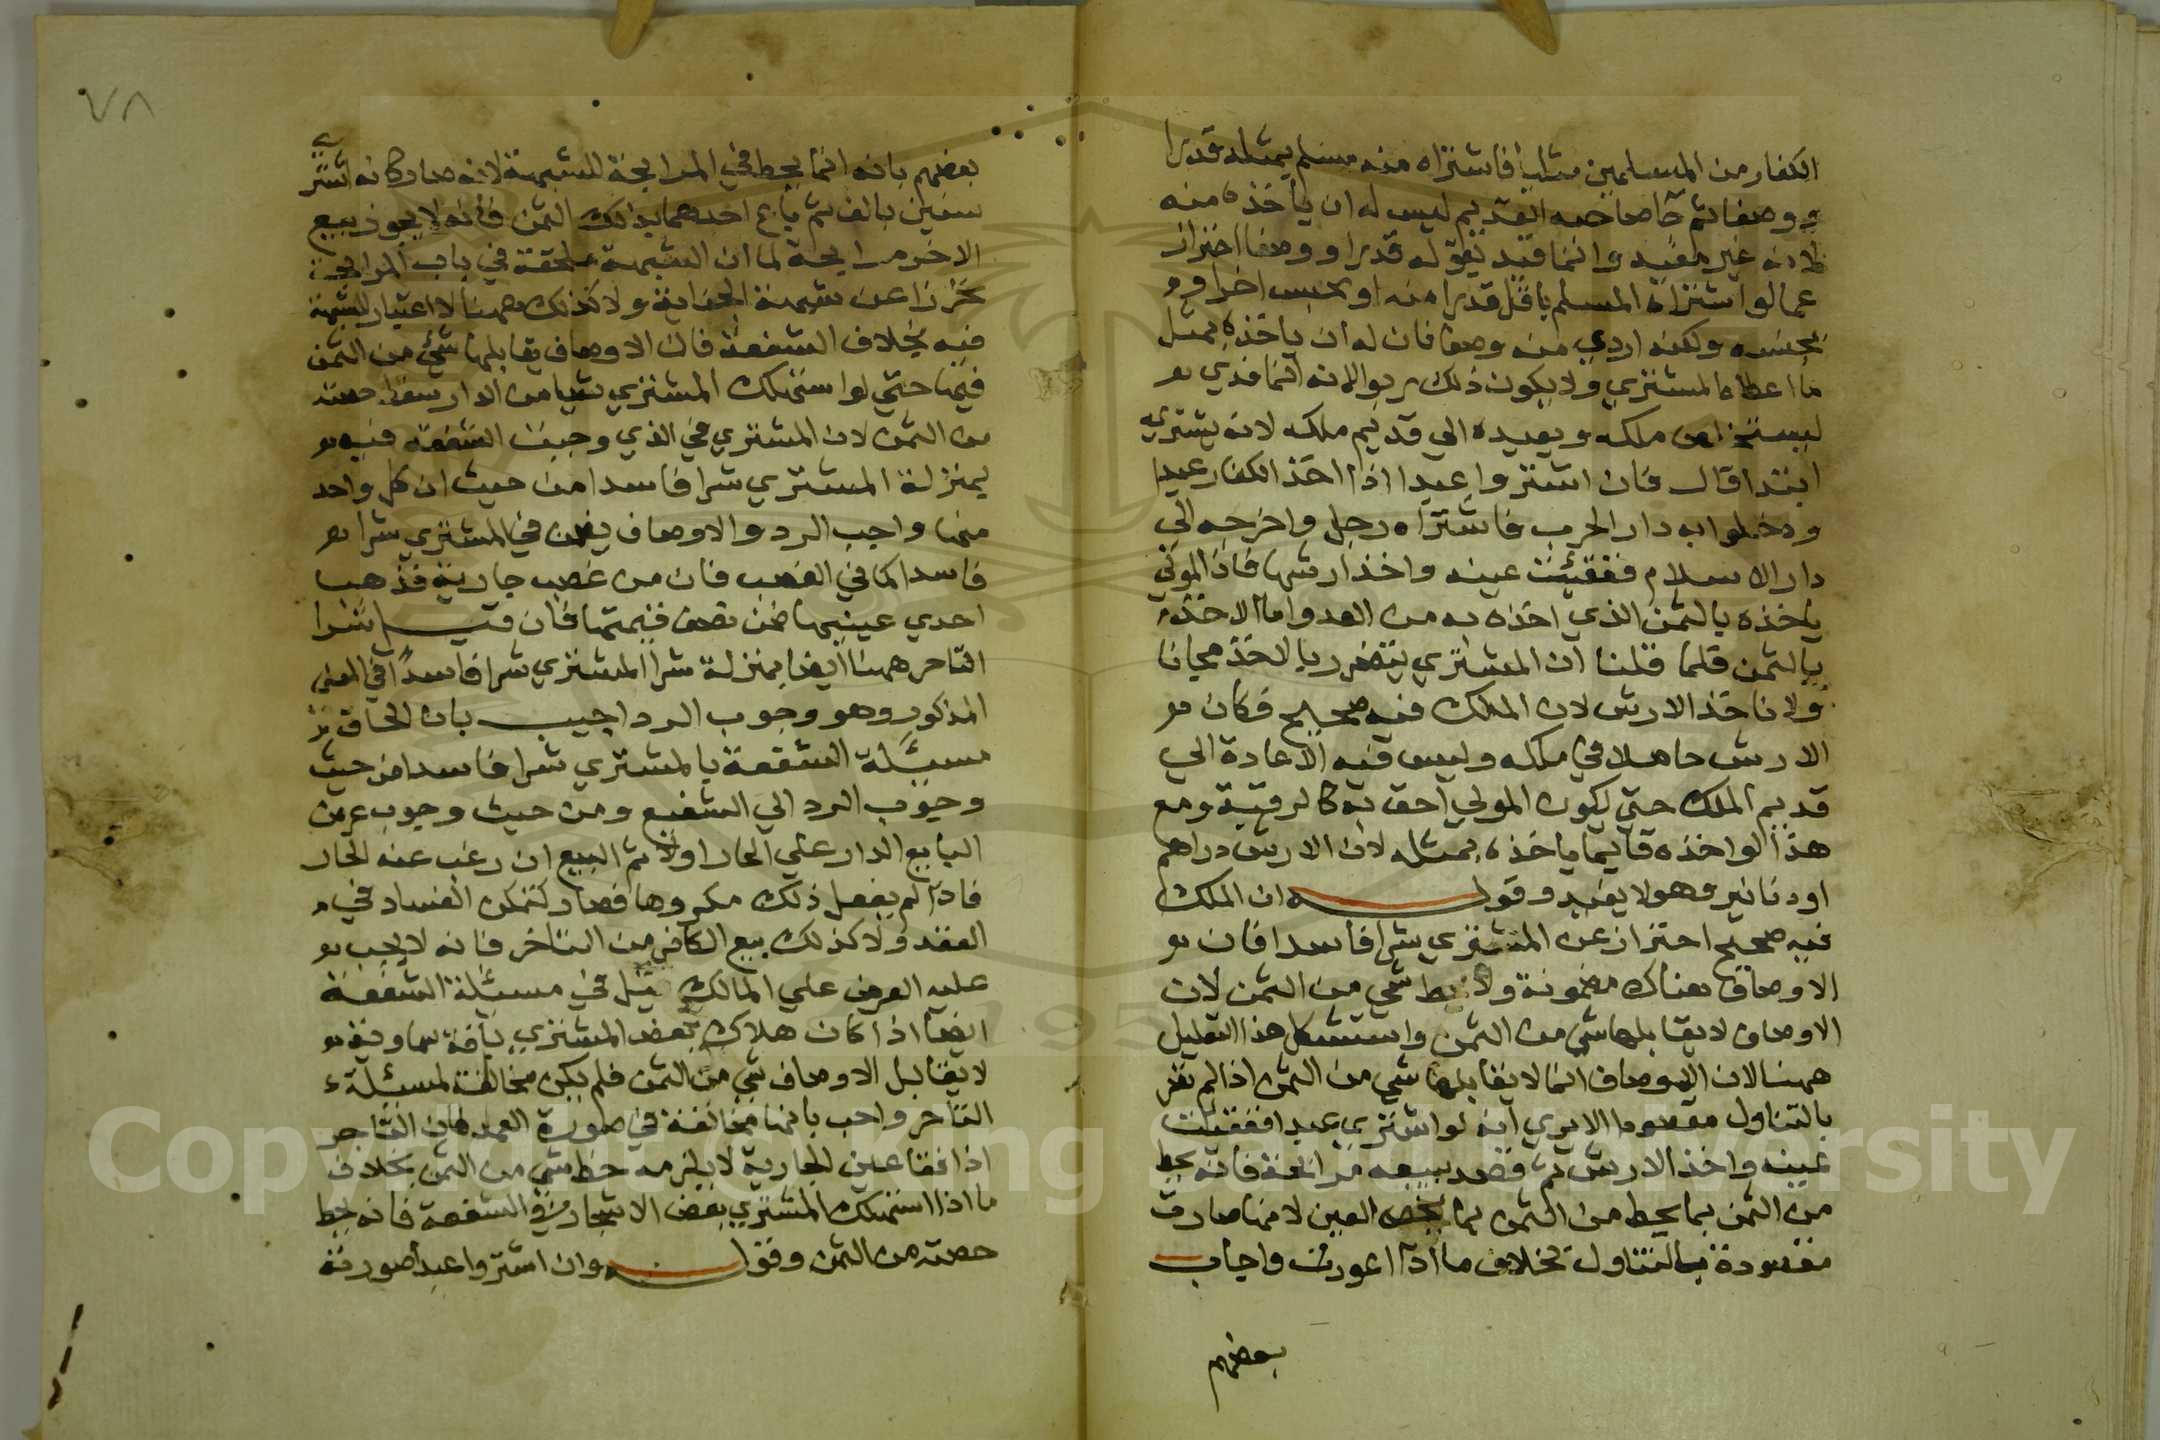 الكفار من المسلمين مثليا فاشتراه منه مسلم بمثله قدرا
ووصفا ثم جا صاحبه القديم ليس له ان ياخذه منه
لانه غير مفيد وانما قيد بقوله قدرا ووصفا احترازا
عما لو اشتراه المسلم باقل قدرا منه او بجنس اخر او
بجنسه ولكنه اردي منه وصفا فان له ان ياخذه بمثل
ما اعطاه المشتري ولا يكون ذلك ربوا لانه انما فدي
ليستخلص ملكه ويعيده الي قديم ملكه لانه يشتريه
ابتدا قال فان اشتروا عبدا اذا اخذ الكفار عبدا
ودخلوا به دار الحرب فاشتراه رجل واخرجه الي
دار الاسلام ففقئت عينه واخذ ارشها فان المولي
ياخذه بالثمن الذي اخذه به من العدو اما الاخذ
بالثمن فلما قلنا ان المشتري يتضرر بالاخذ مجانا
ولا ناخذ الارش لان الملك فيه صحيح فكان
الارش حاصلا في ملكه وليس فيه الاعادة الي
قديم الملك حتي يكون المولي احق به كالرقبة ومع
هذا لو اخذه فانما ياخذه بمثله لان الارش دراهم
او دنانير وهو لا يفيد وقوله ان الملك
فيه صحيح احتراز عن المشتري شرا فاسدا فان
الاوصاف هناك مضمونة ولا يحط شي من الثمن لان
الاوصاف لا يقابلها شي من الثمن واستشكل هذا التعليل
ههنا لان الاوصاف انما لا يقابلها شي من الثمن اذا لم تصر
بالتناول مقصودا الا يري انه لو اشتري عبدا ففقئت
عينه واخذ الارش ثم قصد بيعه مرابحة فانه يحط
من الثمن بما يحط من الثمن بما يخص العين لانها صارت
مقصودة بالتناول بخلاف ما اذا اعورت واجاب
بعضهم
٧٨
بعضهم بانه انما يحط في المرابحة للشبهة لانه صار كانه اشتري
سنين بالف ثم باع احدهما بذلك الثمن فانه لا يجوز بيع
الاخر مرابحة لما ان الشبهة ملحقة في باب المرابحة
تحرزا عن شبهة الخيانة ولا كذلك ههنا لا اعتبار للشبهة
فيه بخلاف الشفعة فان الاوصاف يقابلها شي من الثمن
فيها حتي لو استهلك المشتري شيا من الدار سقط حصته
من الثمن لان المشتري في الذي وجبت الشفعة فيه
بمنزلة المشتري شرا فاسدا من حيث ان كل واحد
منها واجب الرد والاوصاف يضمن في المشتري شرا
فاسدا كما في الغصب فان من غصب جارية فذهب
احدي عينيها ضمن نصف قيمتها فان قيل شرا
التاجر ههنا ايضا بمنزلة شرا المشتري شرا فاسدا في المعني
المذكور وهو وجوب الرد اجيب بان الحاق
مسئلة الشفعة بالمشتري شرا فاسدا من حيث
وجوب الرد الي الشفيع ومن حيث وجوب عرض
البايع الدار علي الجار اولا ثم البيع ان رغب عنه الجار
فاذا لم يفعل ذلك مكروها فصار كتمكن الفساد في
العقد ولا كذلك بيع الكافر من التاجر فانه لا يجب
عليه العرض علي المالك قيل في مسئلة الشفعة
ايضا اذا كان هلاك بعض المشتري بافة سماوية
لا يقابل الاوصاف شي من الثمن فلم يكن مخالفة لمسئلة
التاجر واجب بانها مخالفة في صورة العمد فان التاجر
اذا فقا عين الجارية لا يلزمه حط شي من الثمن بخلاف
ما اذا استهلك المشتري بعض الاشجار في الشفعة فانه يحط
حصته من الثمن وقوله وان اشتروا عبدا صورته